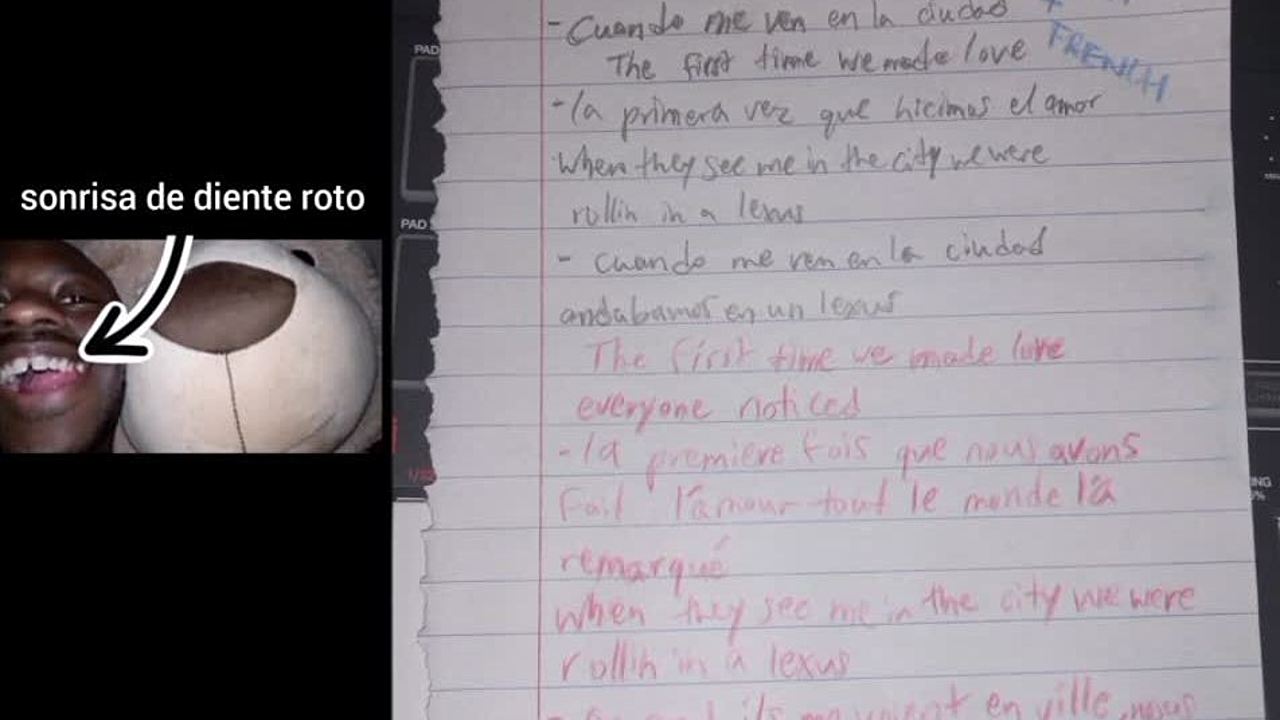 sonrisa de diente roto
PAD
PAD
- Cuando me ven en la ciudad
FRENCH
The first time we made love
- la primera vez que hicimos el amor
When they see me in the city we were
rollin in a lexus
- cuando me ven en la ciudad
andabamos en un lexus
The first time we made love
everyone noticed
- la premiere fois que nous avons
fait l'amour tout le monde la
remarqué
When they see me in the city we were
rollin in a lexus
ils me voient en ville nous